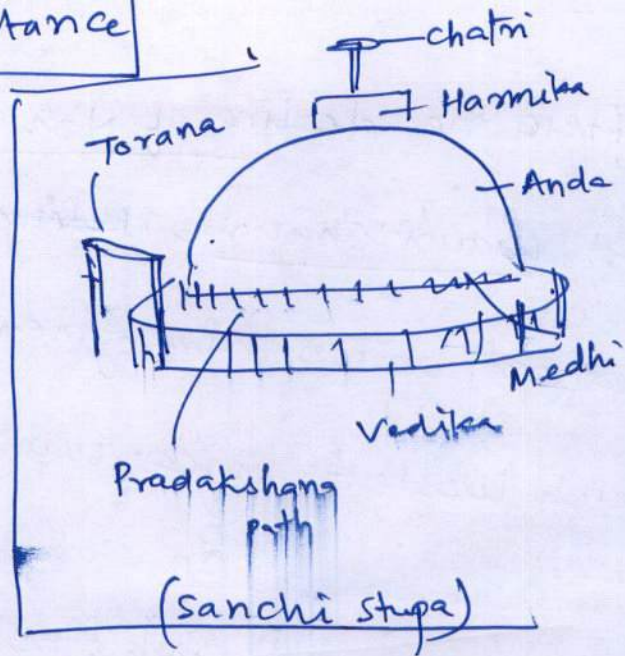 tance
chatri
Harmika
Torana
Anda
Medhi
Vedika
Pradakshana
path
(Sanchi stupa)